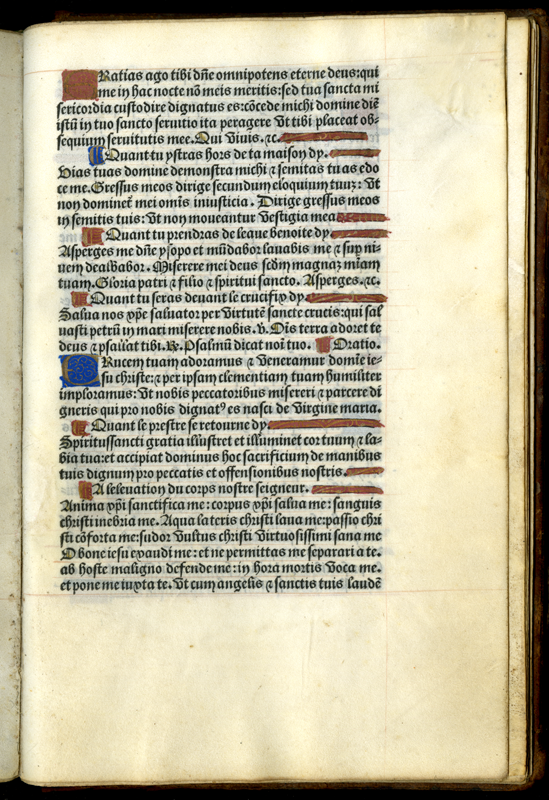 Gratias ago tibi dñe omnipotens eterne deus: qui
me in hac nocte nõ meis meritis: sed tua sancta mi
sericordia custodire dignatus es: cõcede michi domine diẽ
istũ in tuo sancto seruitio ita peragere vt tibi placeat ob-
sequium seruitutis mee. Qui viuis. ⁊c.
Quant tu ystras hors de ta maison dy.
Vias tuas domine demonstra michi ⁊ semitas tuas edo
ce me. Gressus meos dirige secundum eloquium tuuꝫ: vt
non dominet̃ mei om̃is iniusticia. Dirige gressus meos
in semitis tuis: vt non moueantur vestigia mea
Quant tu prendras de leaue benoite dy.
Asperges me dñe ysopo et mũdabor lauabis me ⁊ sup̱ ni-
uem dealbabor. Miserere mei deus scd̃m magnaꝫ miam̃
tuam. Gloria patri ⁊ filio ⁊ spiritui sancto. Asperges. ⁊c.
Quant tu seras deuant le crucifix dy
Salua nos xp̃e saluator per virtutẽ sancte crucis: qui sal
uasti petrũ in mari miserere nobis. v̷. Oĩs terra adoret te
deus ⁊ psallat tibi. ℞. Psalmũ dicat noĩ tuo. Oratio.
CRucem tuam adoramus ⁊ veneramur domĩe ie-
su christe: ⁊ per ipsam clementiam tuam humiliter
imploramus: vt nobis peccatoribus misereri ⁊ parcere di
gneris qui pro nobis dignatꝰ es nasci de virgine maria.
Quant le prestre se retourne dy.
Spiritussancti gratia illustret et illuminet cor tuum ⁊ la-
bia tua: et accipiat dominus hoc sacrificium de manibus
tuis dignum pro peccatis et offensionibus nostris.
A leleuation du corps nostre seigneur.
Anima xp̃i sanctifica me: corpus xp̃i salua me: sanguis
christi inebria me. Aqua lateris christi laua me: passio chri
sti cõforta me: sudor vultus christi virtuosissimi sana me
O bone iesu exaudi me: et ne permittas me separari a te.
ab hoste maligno defende me: in hora mortis voca me.
et pone me iuxta te. Vt cum angelis ⁊ sanctis tuis laudẽ